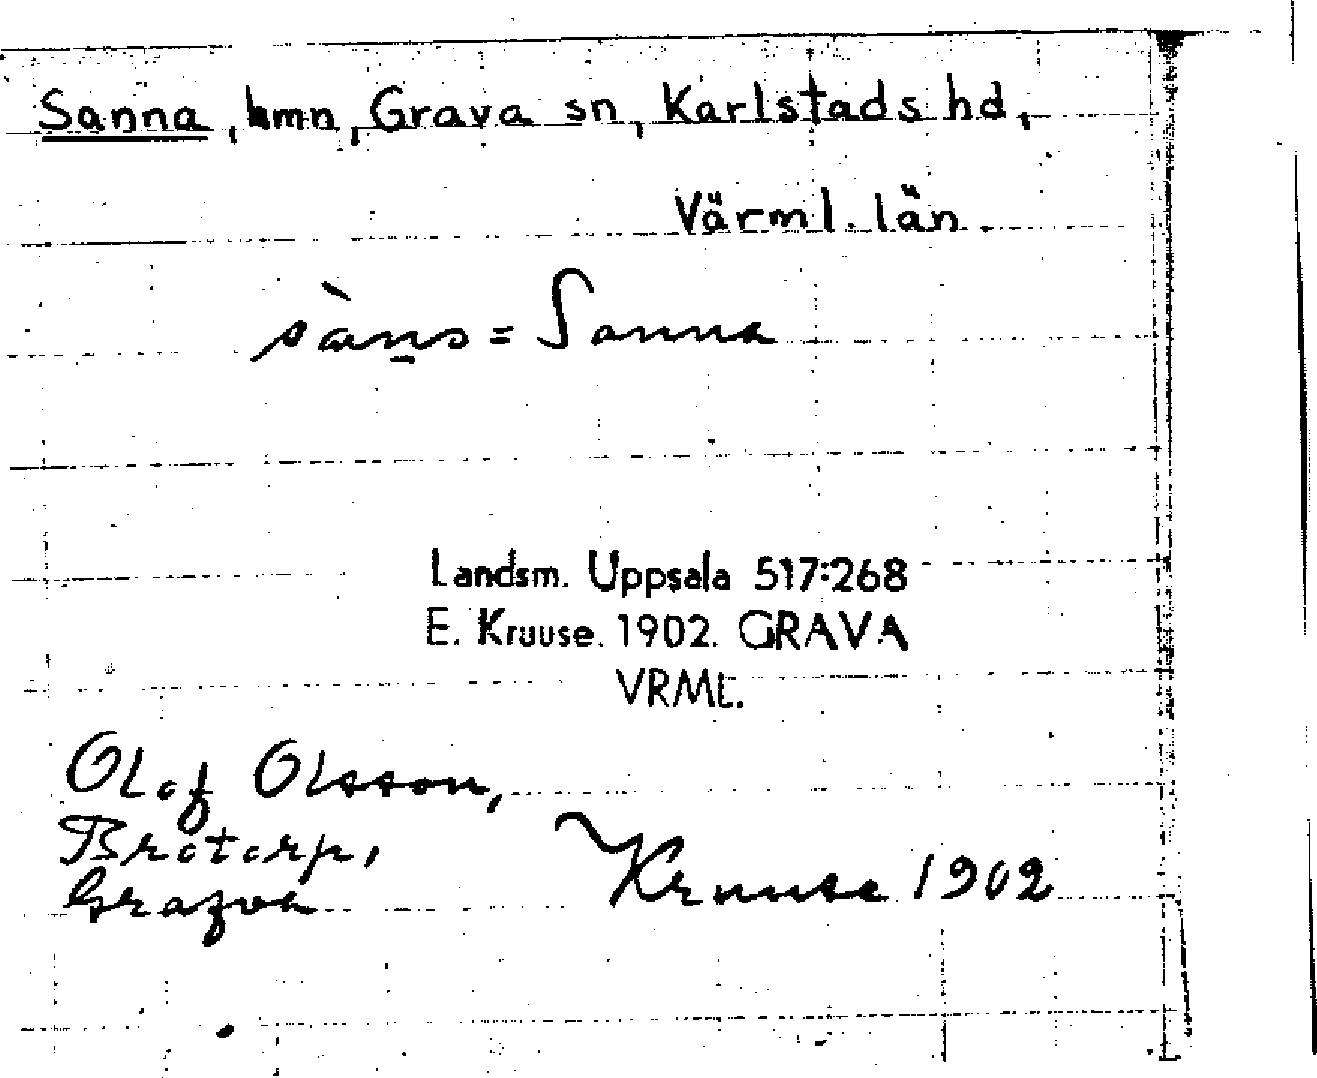 Sanna, hmn, Grava sn, Karlstads hd,
Värml. län.
sàṉs = Sanna
Landsm. Uppsala 517:268
E. Kruuse. 1902. GRAVA
VRML.
Olof Olsson,
Brotorp,
Grafva
Kruuse 1902